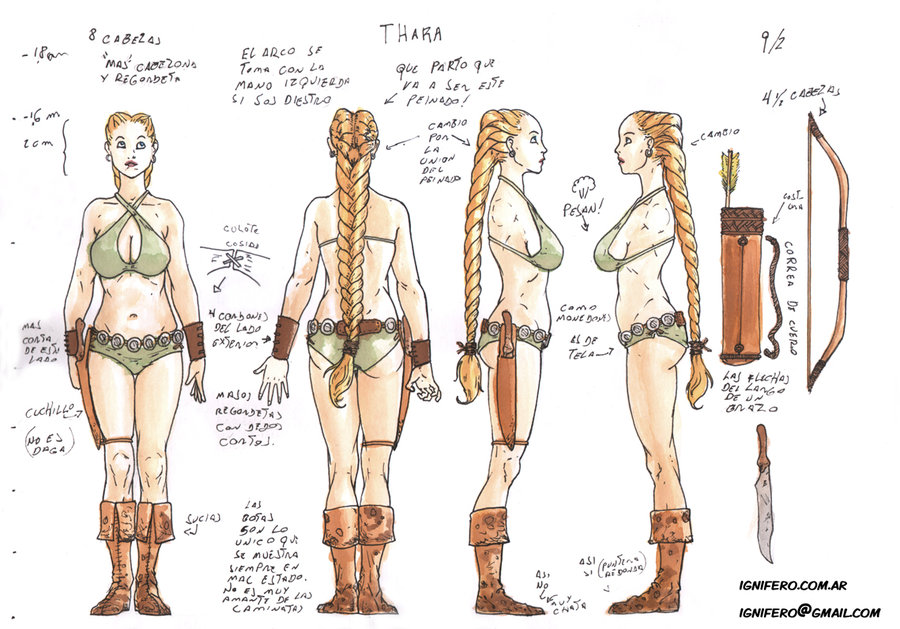 THARA
9/2
8 CABEZAS
"MAS" CABEZONA
Y REGORDETA
EL ARCO SE
TOMA CON LA
MANO IZQUIERDA
SI SOS DIESTRO
QUE PARTO QUE
VA A SER ESTE
PEINADO!
4 1/2 CABEZAS
- 1,8 cm
- 1,6 m
2 cm
CAMBIO
POR
LA
UNION
DEL
PEINADO
CAMBIO
PESAN!
COSTURA
CORREA DE CUERO
CULOTE
COSIDO
4 CORDONES
DEL LADO
EXTERIOR
COMO
MONEDONAS
AS DE
TELA
MAS
CORTA
DE ESTE
LADO
CUCHILLO
(NO ES
DAGA)
MANOS
REGORDETAS
CON DEDOS
CORTOS.
LAS FLECHAS
DEL LARGO
DE UN
BRAZO
SUCIAS
LAS
BOTAS
SON LO
UNICO QUE
SE MUESTRA
SIEMPRE EN
MAL ESTADO.
NO ES MUY
AMANTE DE LAS
CAMINATAS
ASI
NO
MUY
CHATA
ASI
SI
(PUNTERA
REDONDA)
IGNIFERO.COM.AR
IGNIFERO@GMAIL.COM